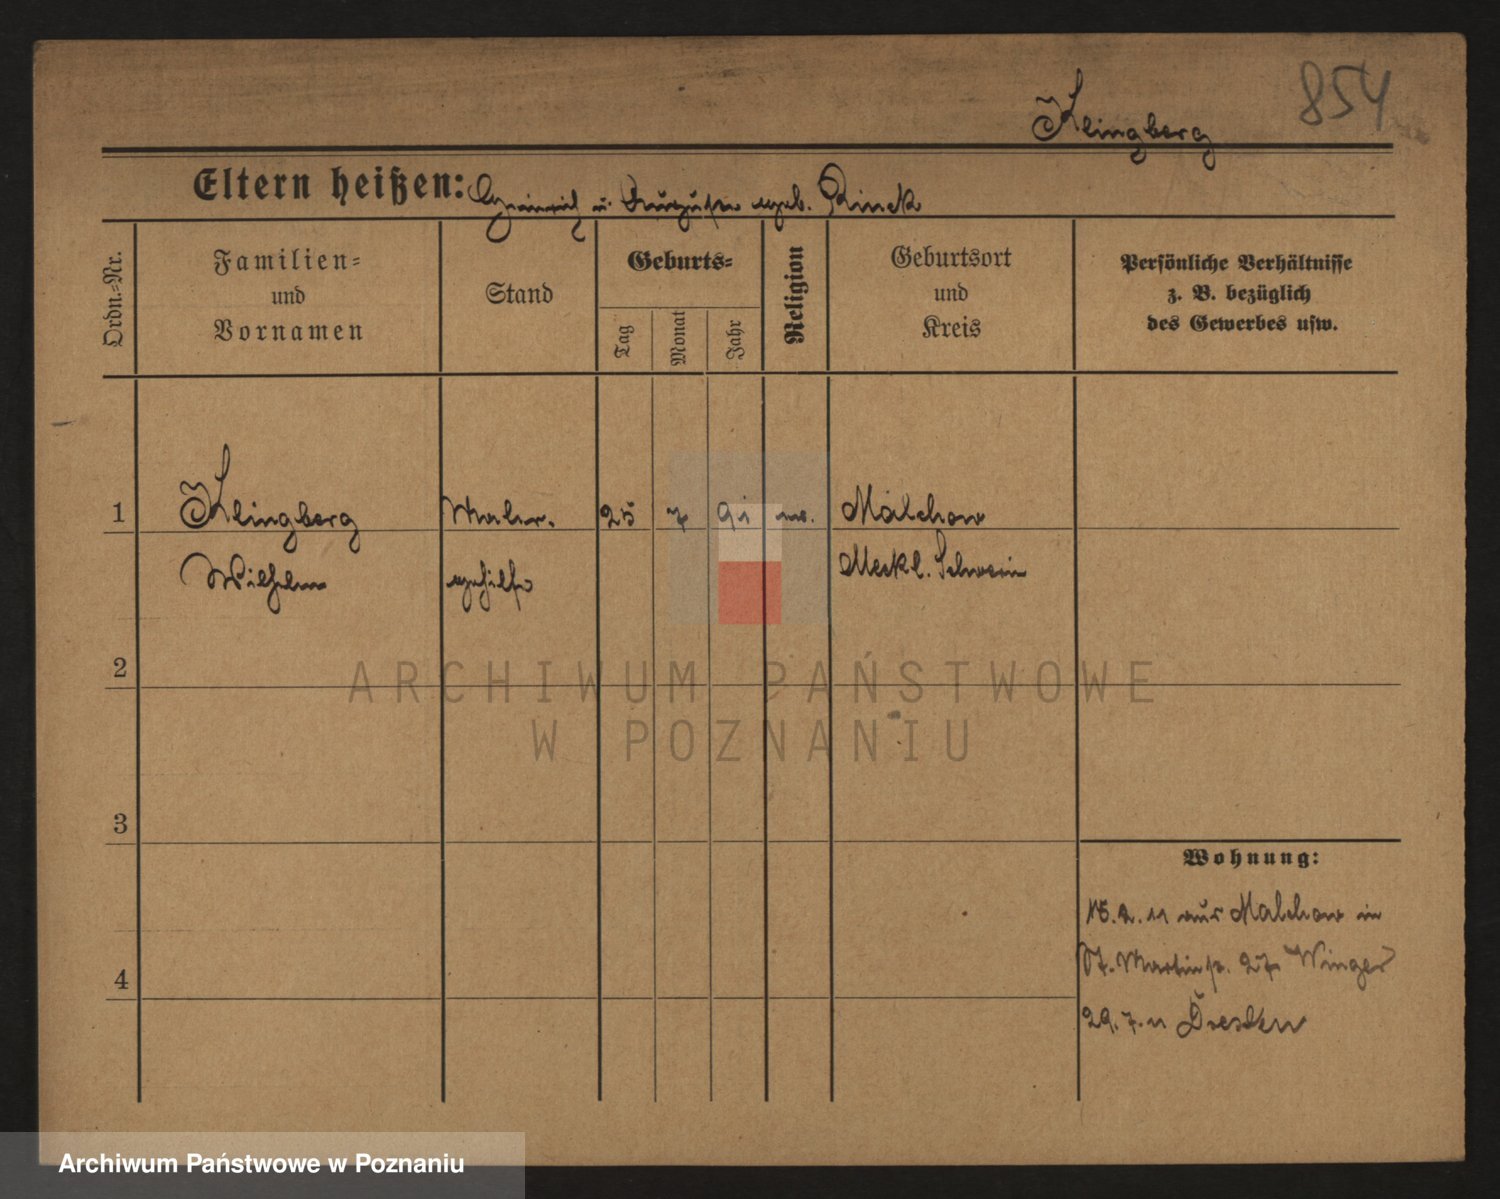 854
Klingberg
Eltern heißen: Heinrich u. Auguste geb. Rinck
Ordn.=Nr.
Familien=
und
Vornamen
Stand
Geburts=
Tag
Monat
Jahr
Religion
Geburtsort
und
Kreis
Persönliche Verhältnisse
z. B. bezüglich
des Gewerbes usw.
1 Klingberg Maler- 25 7 91 ev. Malchow
Wilhelm gehilfe Meckl. Schwerin
2
3
4
Wohnung:
2.11 aus Malchow in
St. Martinstr. 27 Winger
29.7.11 Dresden
ARCHIWUM PAŃSTWOWE
W POZNANIU
Archiwum Państwowe w Poznaniu